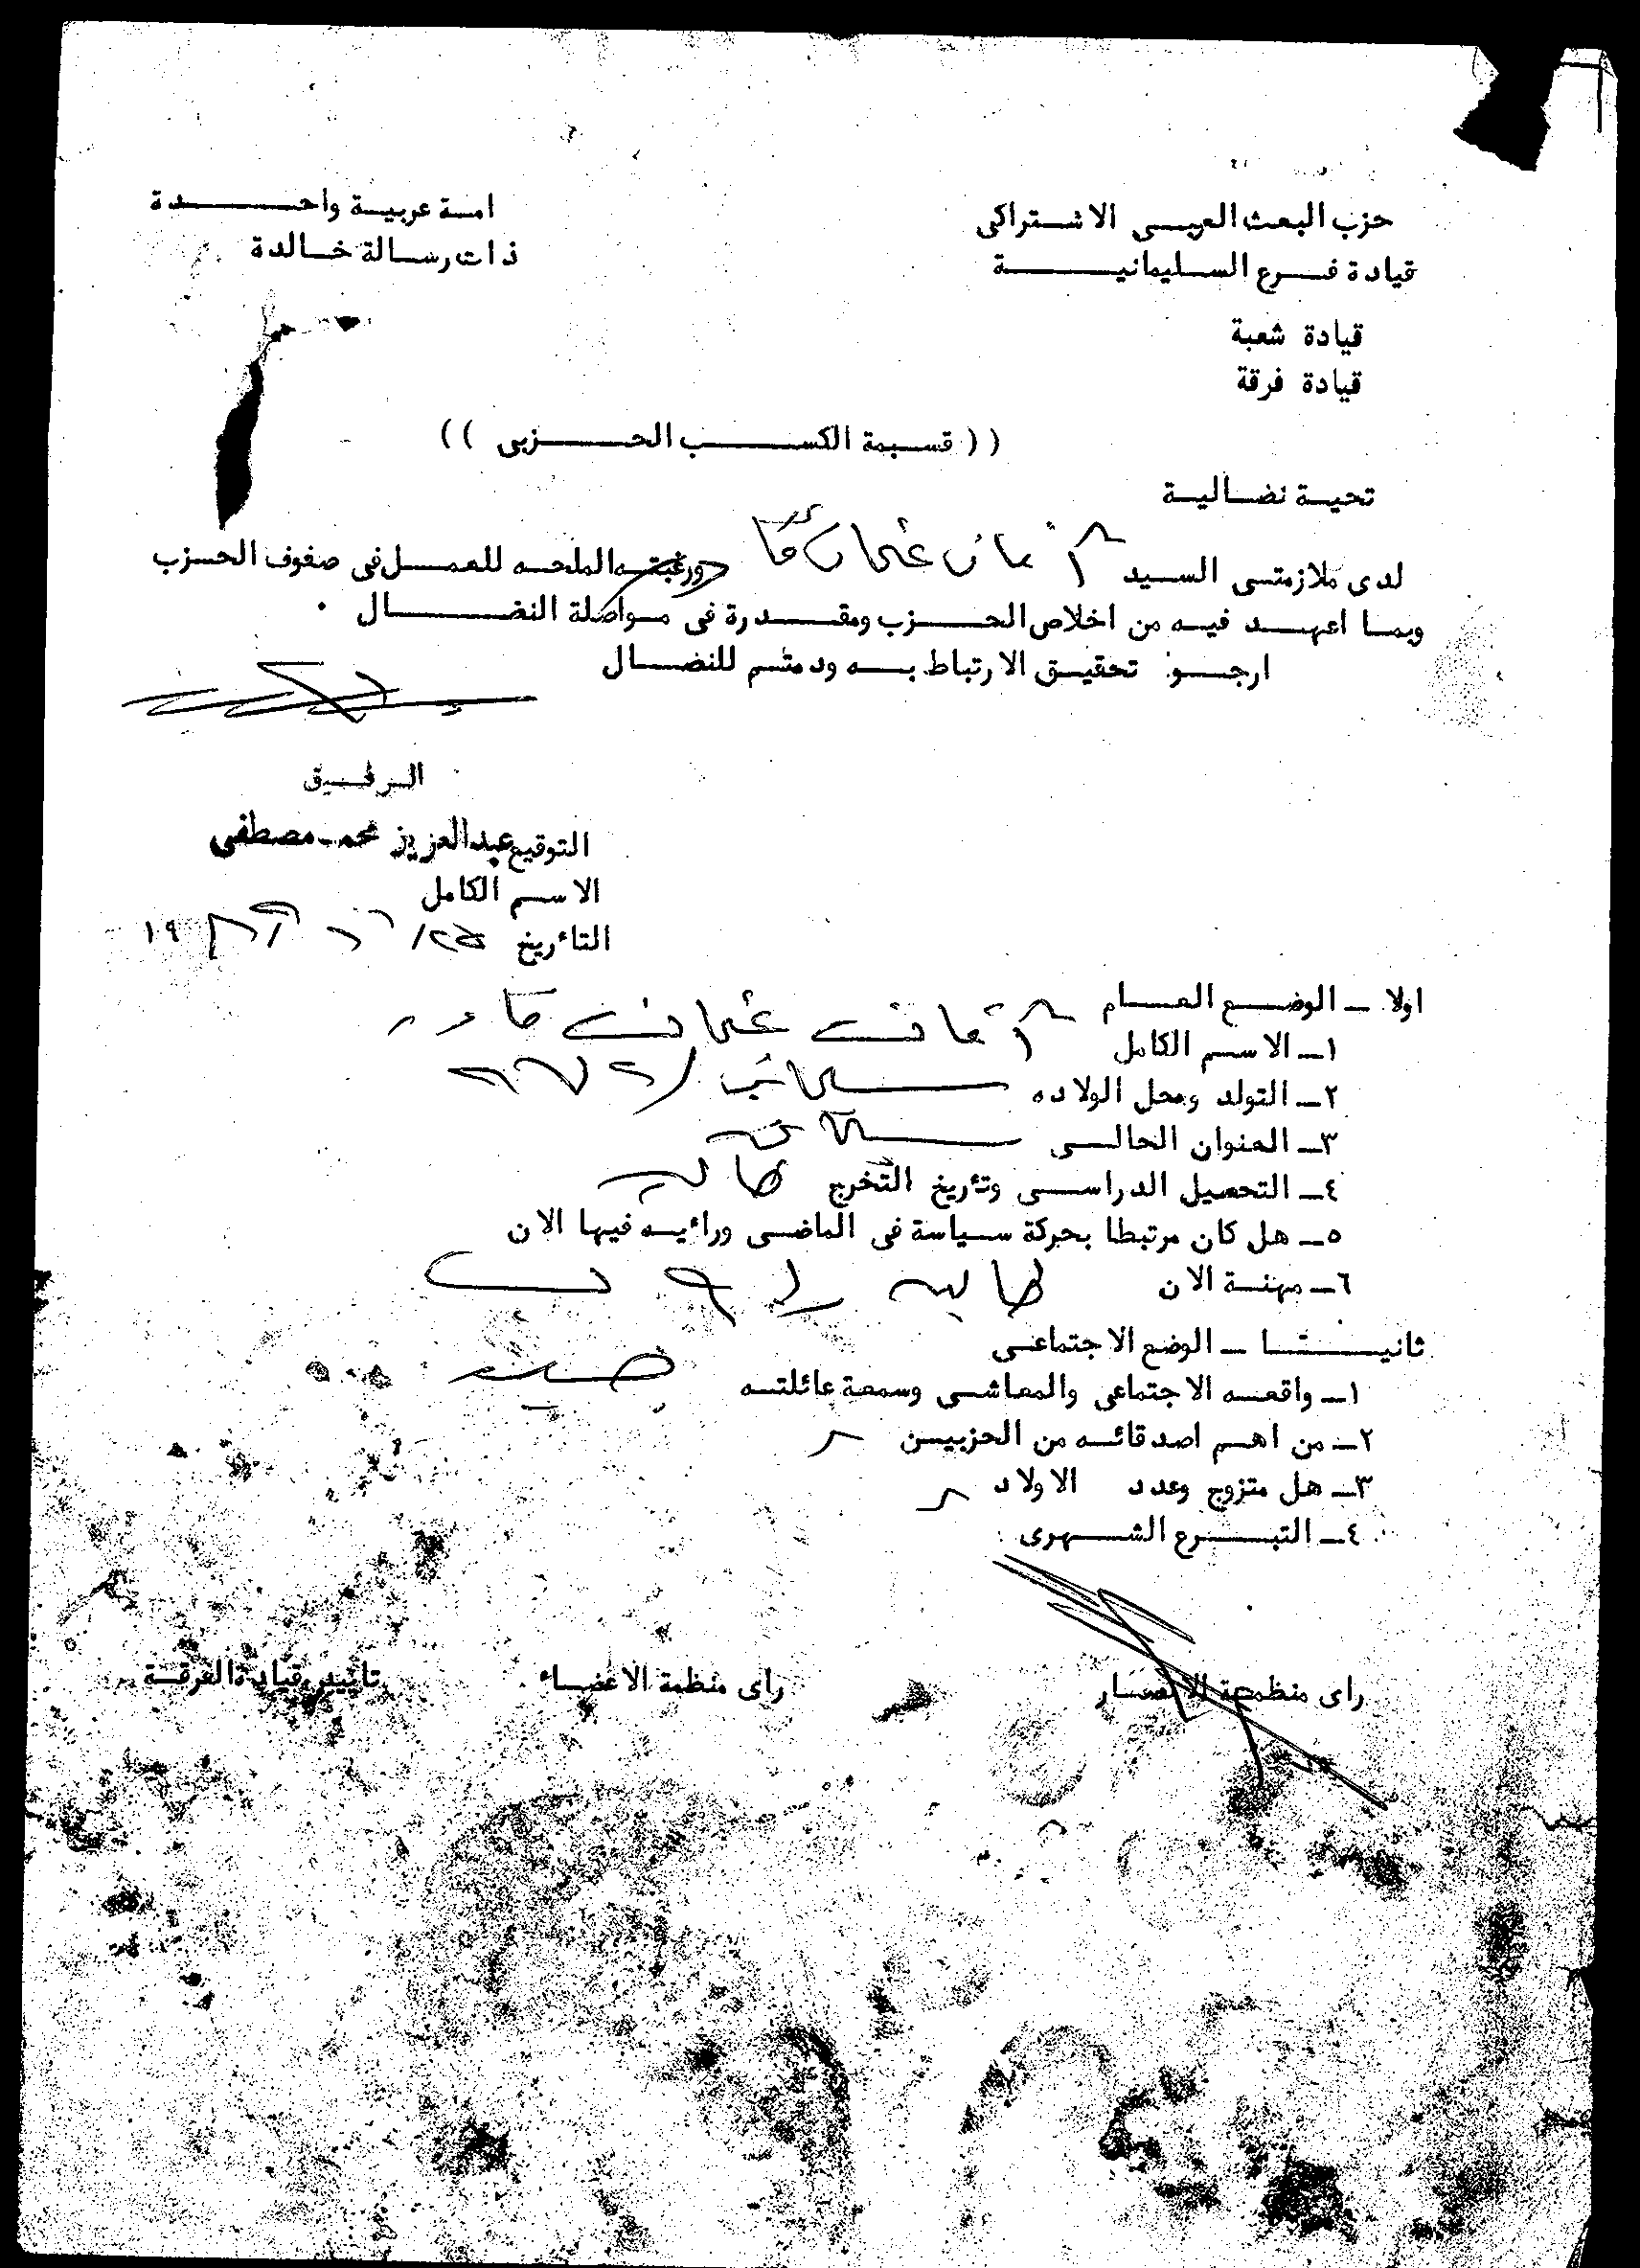 حزب البعث العربي الاشتراكي
امة عربية واحدة
قيادة فرع السليمانية
ذات رسالة خالدة
قيادة شعبة
قيادة فرقة
(( قسيمة الكسب الحزبي ))
تحية نضالية
لدى ملازمتي السيد عثمان ورغبته الملحه للعمل في صفوف الحزب
وبما اعهد فيه من اخلاص الحزب ومقدرة في مواصلة النضال .
ارجو تحقيق الارتباط به ودمتم للنضال
الرفيق
التوقيع عبدالعزيز محمد مصطفى
الاسم الكامل
التأريخ ١٩
اولا - الوضع العام
١- الاسم الكامل عثمان قادر
٢- التولد ومحل الولاده سليمانية
٣- العنوان الحالي
٤- التحصيل الدراسي وتأريخ التخرج طالب
٥- هل كان مرتبطا بحركة سياسة في الماضي ورأيه فيها الان
٦- مهنة الان طالب
ثانيا - الوضع الاجتماعي
١- واقعه الاجتماعي والمعاشي وسمعة عائلته
٢- من اهم اصدقائه من الحزبين
٣- هل متزوج وعدد الاولاد
٤- التبرع الشهري
راى منظمة الانصار
راى منظمة الاعضاء
تاييد قيادة الفرقة